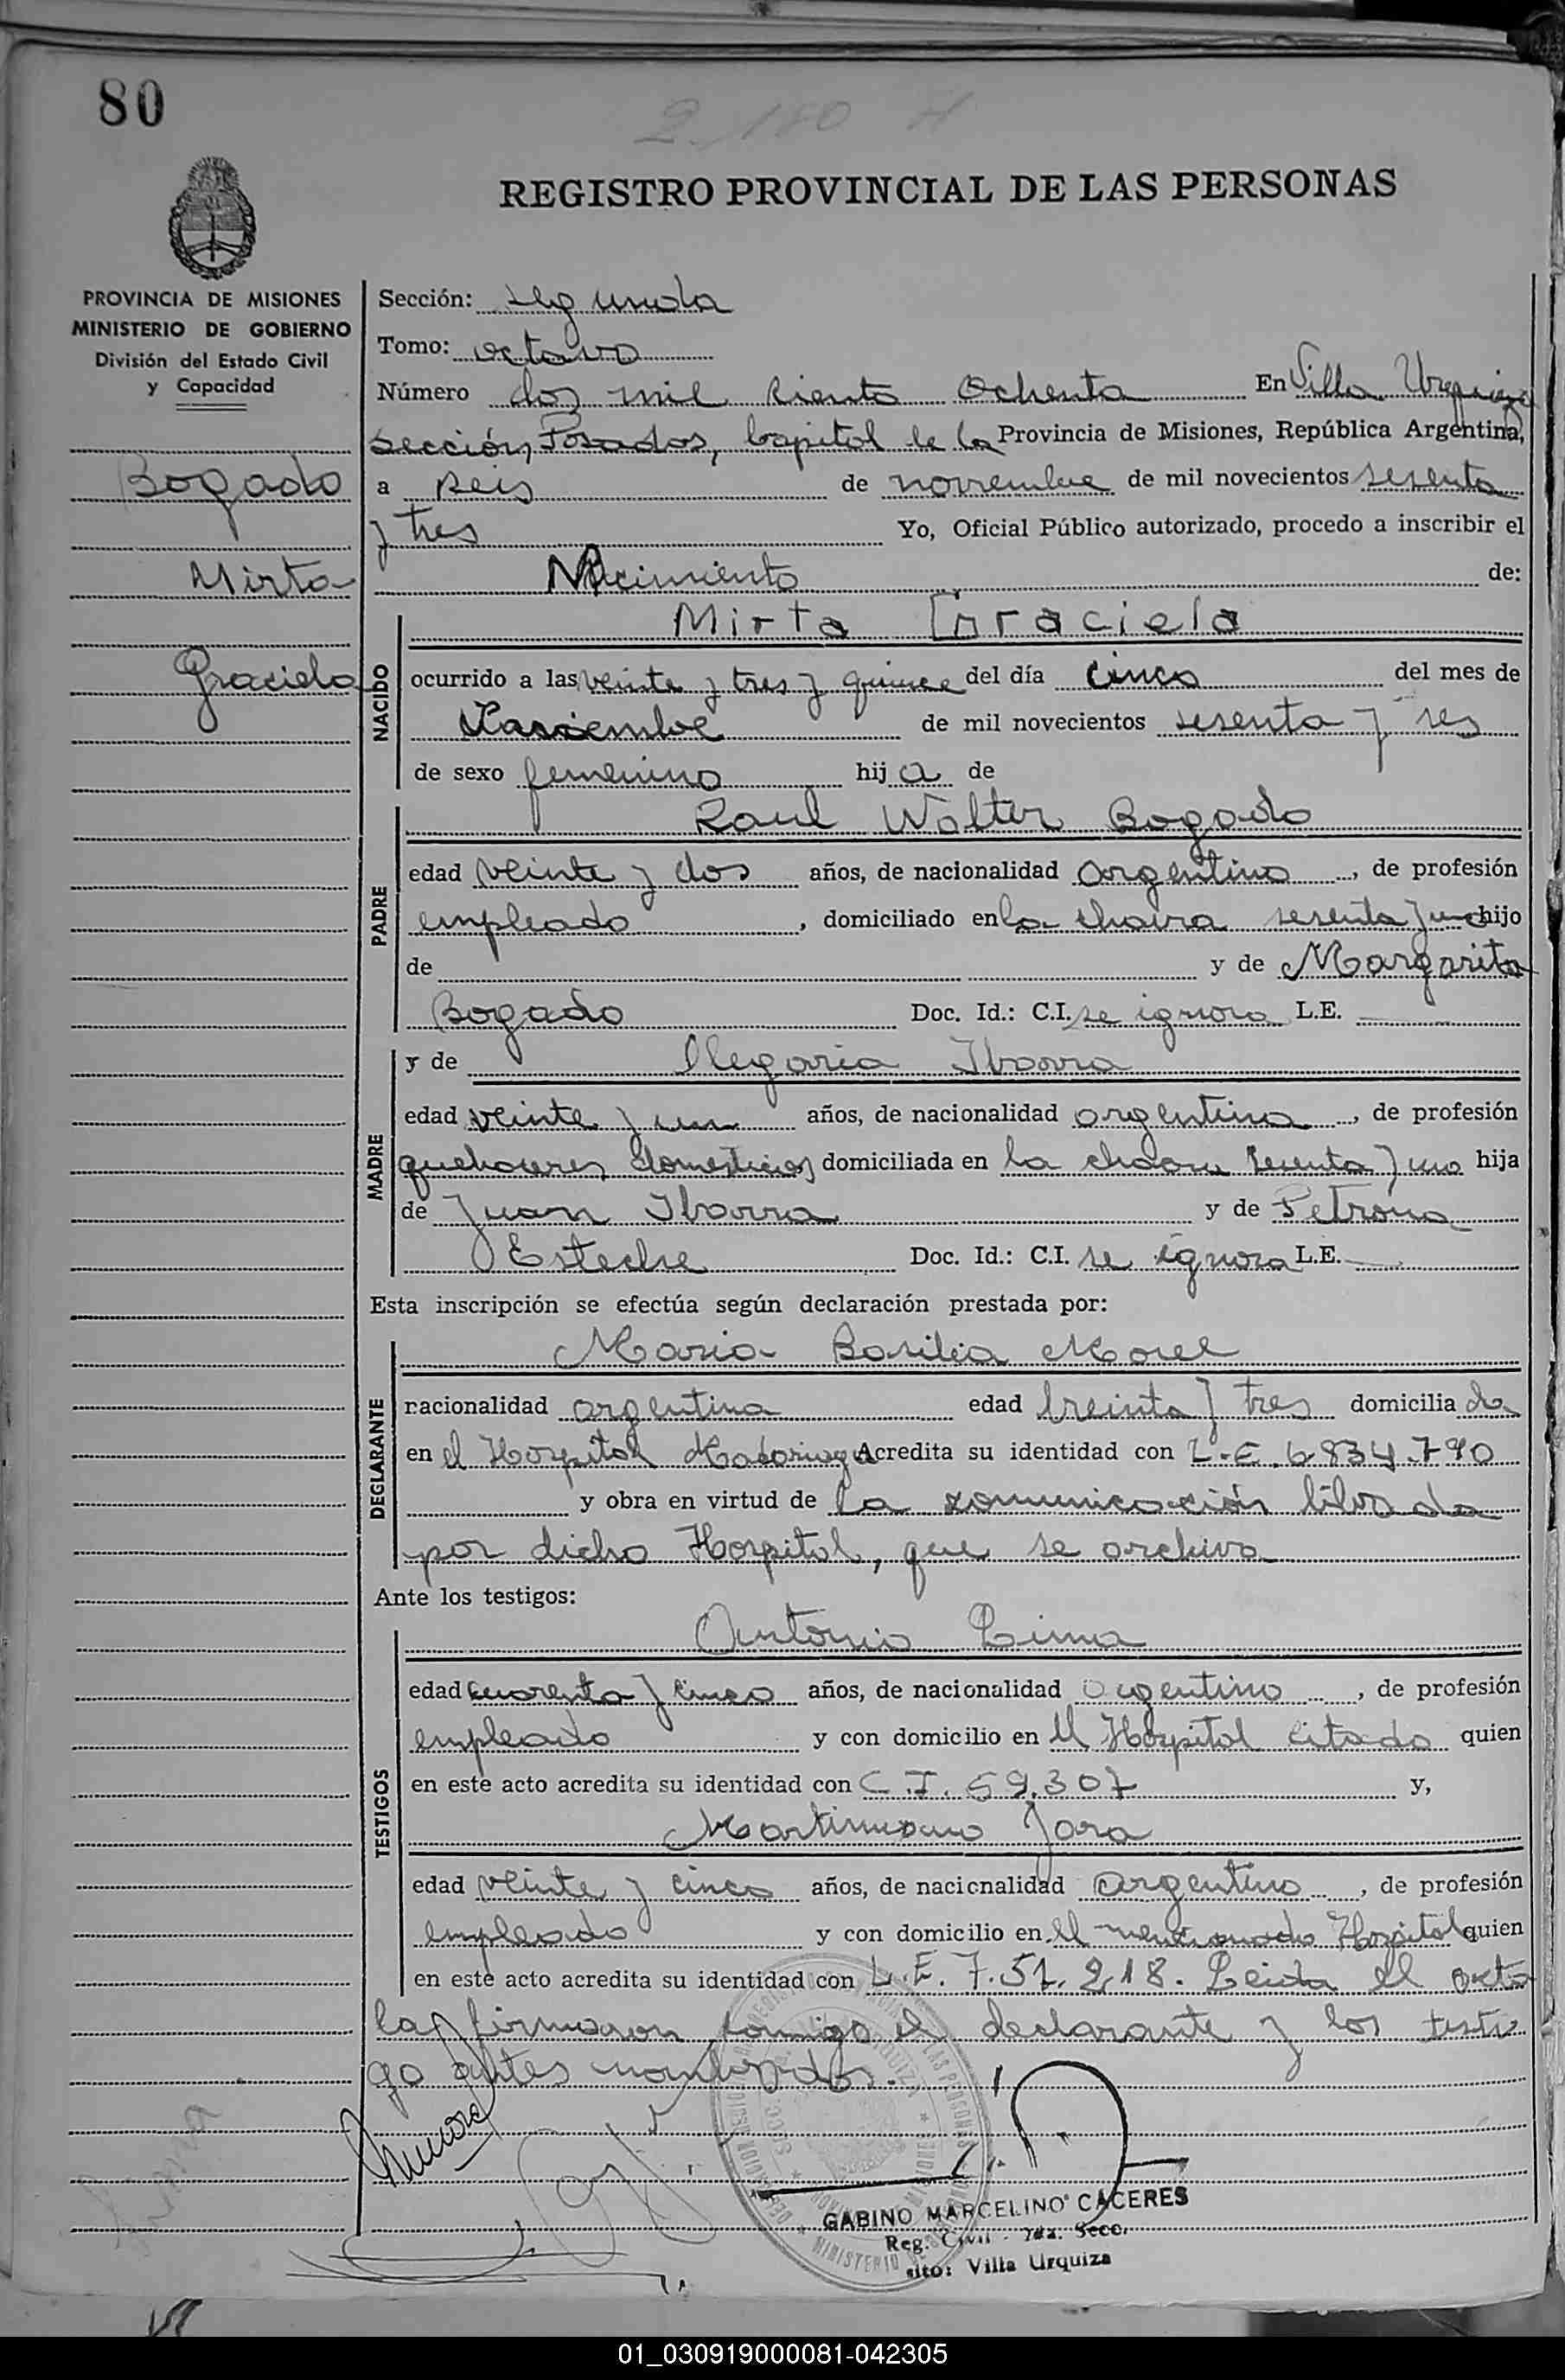 80
2-180 A
REGISTRO PROVINCIAL DE LAS PERSONAS
PROVINCIA DE MISIONES
MINISTERIO DE GOBIERNO
División del Estado Civil
y Capacidad
Bogado
Mirta
Graciela
Sección: segunda
Tomo: octavo
Número dos mil ciento ochenta En Villa Urquiza
sección, Posadas, Capital de la Provincia de Misiones, República Argentina,
a seis de noviembre de mil novecientos sesenta
y tres Yo, Oficial Público autorizado, procedo a inscribir el
Nacimiento de:
NACIDO
Mirta Graciela
ocurrido a las veinte y tres y quince del día cinco del mes de
de mil novecientos sesenta y tres
de sexo femenino hij a de
PADRE
Raul Walter Bogado
edad veinte y dos años, de nacionalidad argentino, de profesión
empleado, domiciliado en la chacra sesenta y uno hijo
de y de Margarita
Bogado Doc. Id.: C.I. se ignora L.E.
MADRE
y de Olegaria Ibarra
edad veinte y un años, de nacionalidad argentina, de profesión
quehaceres domesticos domiciliada en la chacra sesenta y uno hija
de Juan Ibarra y de Petrona
Esteche Doc. Id.: C.I. se ignora L.E.
Esta inscripción se efectúa según declaración prestada por:
DECLARANTE
Maria Basilia Morel
nacionalidad argentina edad treinta y tres domicilia da
en el Hospital Madariaga Acredita su identidad con L.E. 6.834.790
y obra en virtud de la comunicación librada
por dicho Hospital, que se archiva
Ante los testigos:
TESTIGOS
Antonio Lima
edad cuarenta y cinco años, de nacionalidad argentino, de profesión
empleado y con domicilio en el Hospital citado quien
en este acto acredita su identidad con C.I. 69.307 y,
Martimiano Jara
edad veinte y cinco años, de nacionalidad argentino, de profesión
empleado y con domicilio en el mencionado Hospital quien
en este acto acredita su identidad con L.E. 7.51.218. Leida el acta
la firmaron conmigo el declarante y los testi
go antes nombrados.
GABINO MARCELINO CACERES
Reg. Civil - 2da. Secc.
sito: Villa Urquiza
01_030919000081-042305